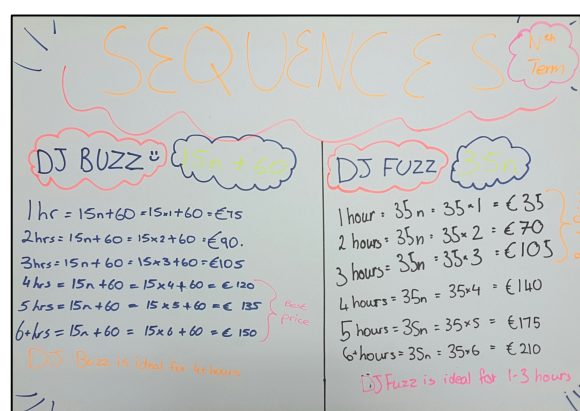 SEQUENCES
Nth
Term
DJ BUZZ
15n + 60
1 hr = 15n+60 = 15×1+60 = €75
2hrs = 15n+60 = 15×2+60 = €90.
3hrs = 15n+60 = 15×3+60 = €105
4 hrs = 15n+60 = 15×4+60 = € 120
5 hrs = 15n+60 = 15×5+60 = € 135
6+hrs = 15n+60 = 15×6+60 = € 150
Best
price
DJ Buzz is ideal for 4+ hours
DJ FUZZ
35n
1 hour = 35n = 35×1 = €35
2 hours = 35n = 35×2 = €70
3 hours = 35n = 35×3 = €105
4 hours = 35n = 35×4 = €140
5 hours = 35n = 35×5 = €175
6+hours = 35n = 35×6 = €210
DJ Fuzz is ideal for 1-3 hours